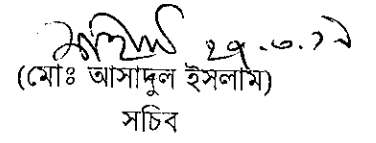 ২৭.৩.১৯
(মোঃ আসাদুল ইসলাম)
সচিব